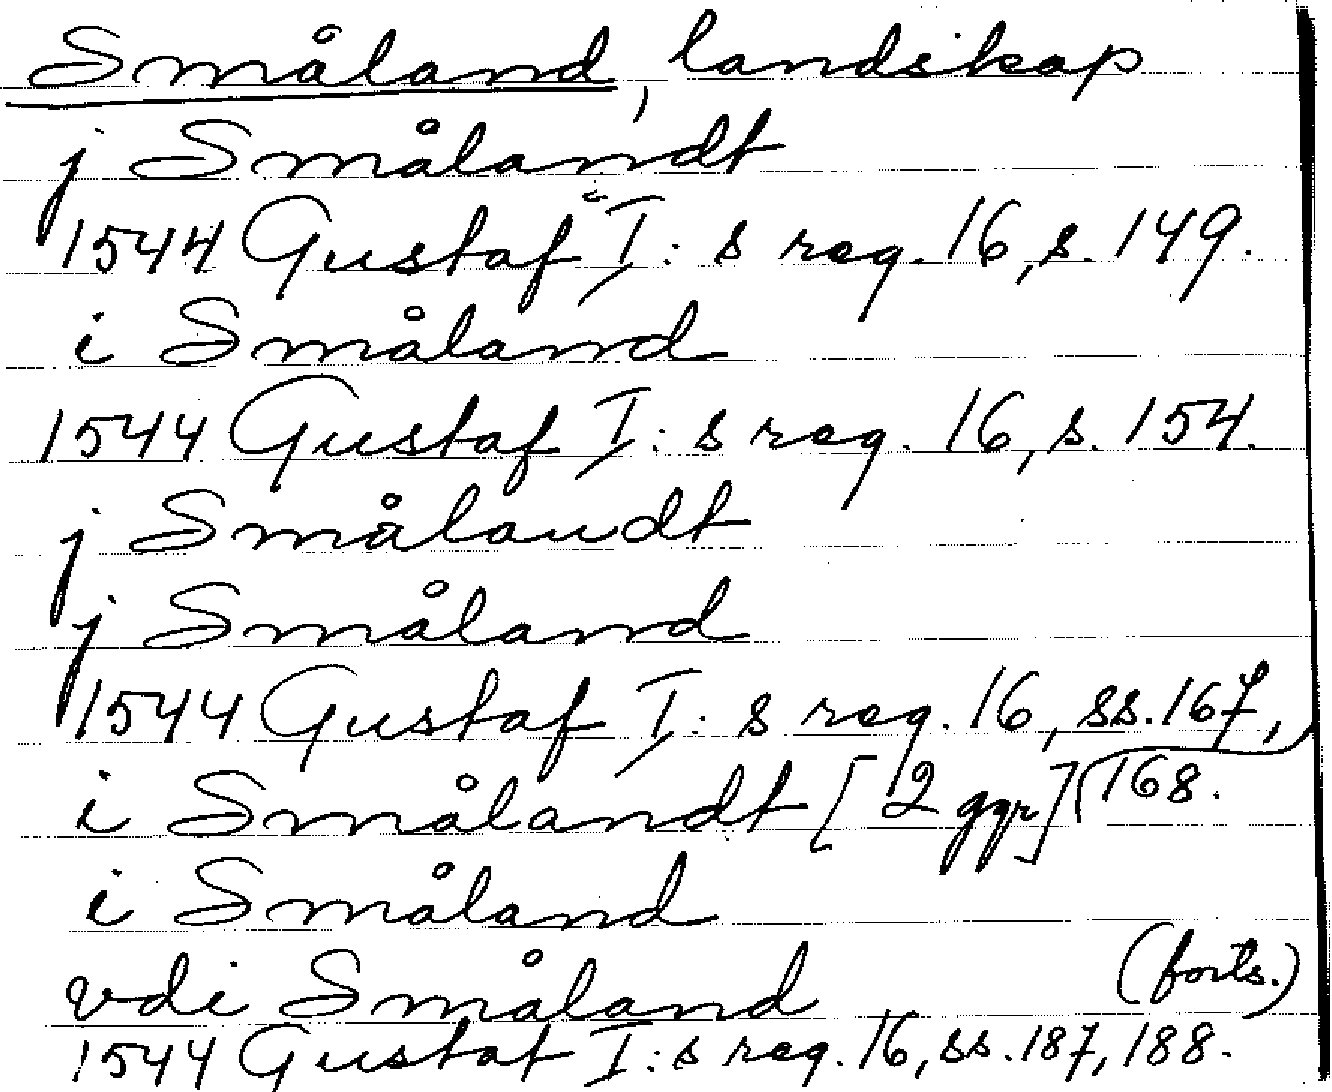 Småland, landskap
j Smålandt
1544 Gustaf I:s reg. 16, s. 149.
i Småland
1544 Gustaf I:s reg. 16, s. 154.
j Smålandt
j Småland
1544 Gustaf I:s reg. 16, ss. 167, 168.
i Smålandt [2 ggr]
i Småland
vdi Småland (forts.)
1544 Gustaf I:s reg. 16, ss. 187, 188.